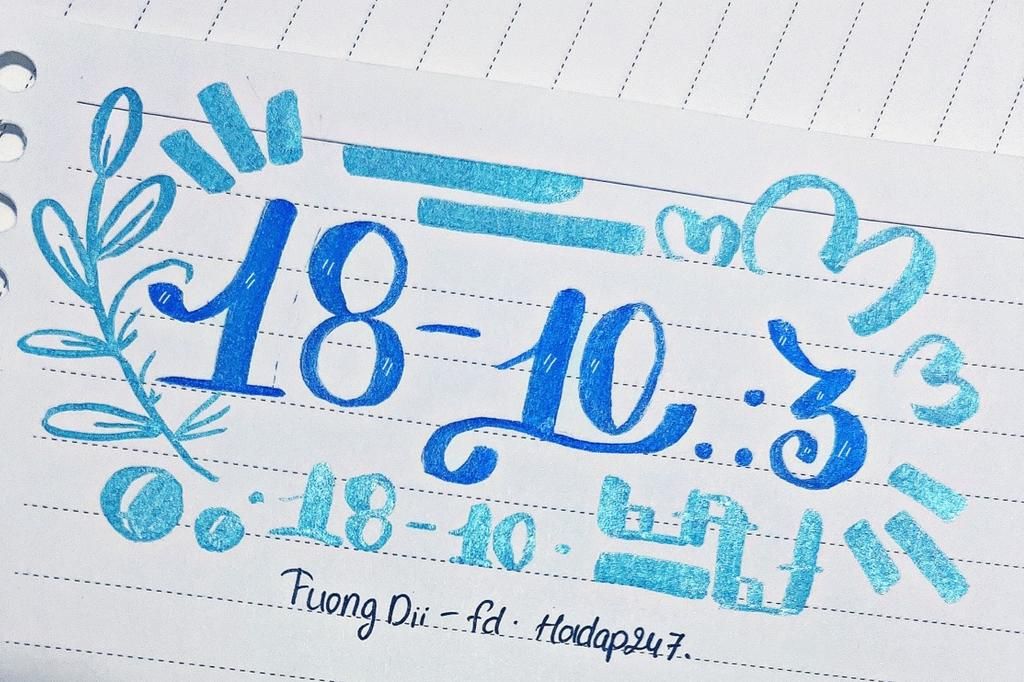 18-10..:3
18-10.
Fuong Dii - fd. Hoidap247.